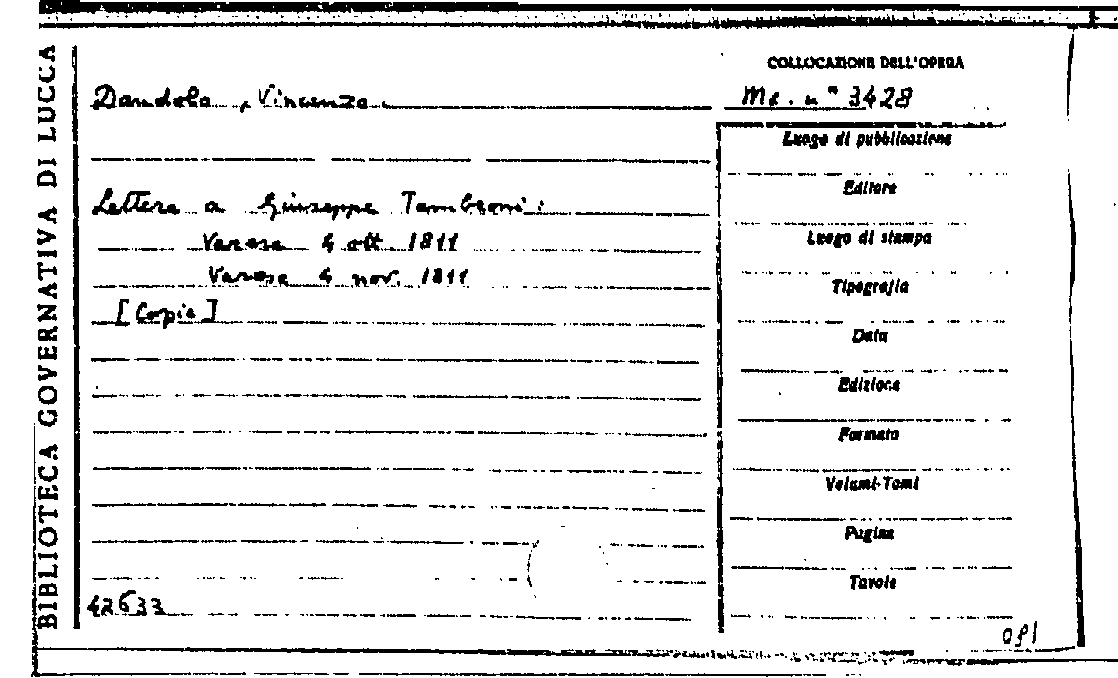 BIBLIOTECA GOVERNATIVA DI LUCCA
Dandolo, Vincenzo.
Lettere a Giuseppe Tambroni:
Varese 4 ott. 1811
Varese 4 nov. 1811
[Copie]
42633
COLLOCAZIONE DELL'OPERA
Ms. n° 3428
Luogo di pubblicazione
Editore
Luogo di stampa
Tipografia
Data
Edizione
Formato
Volumi-Tomi
Pagine
Tavole